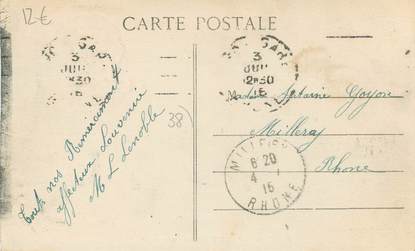 12€
CARTE POSTALE
3
12 30
3
12 30
Tous nos Remerciements
affectueux Souvenirs
M L Lenoble
38
Antoine Goyon
Millery
Rhône
MILLERY
8 20
4
15
RHONE